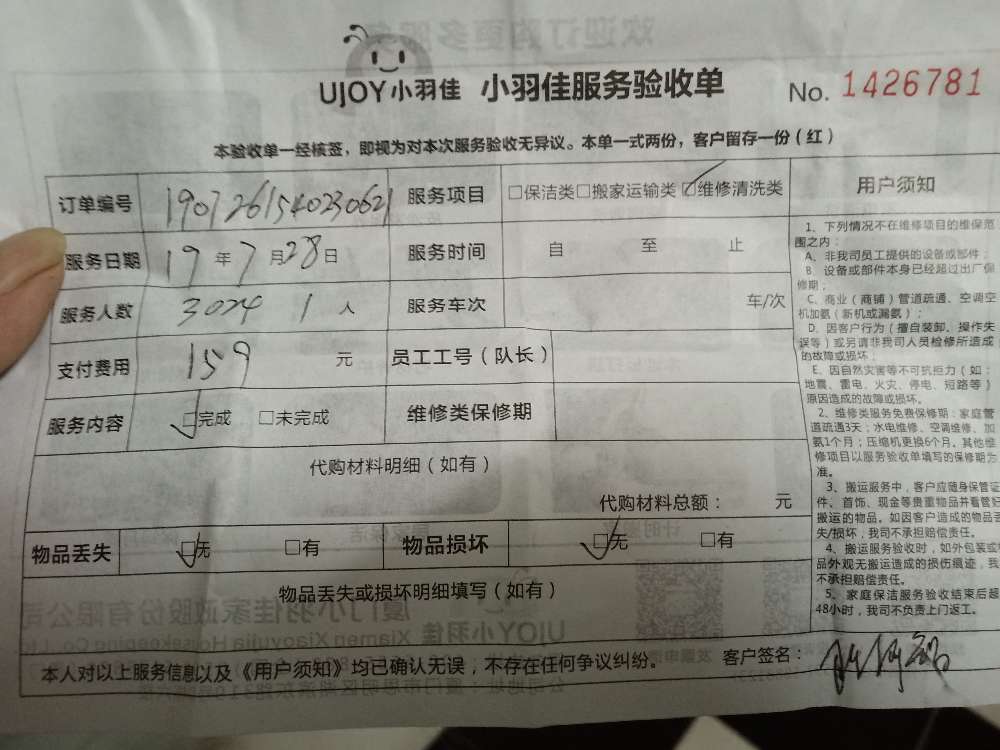 UJOY小羽佳 小羽佳服务验收单 No. 1426781
本验收单一经核签，即视为对本次服务验收无异议。本单一式两份，客户留存一份（红）
订单编号 1907261540230621 服务项目 □保洁类□搬家运输类☑维修清洗类
服务日期 19年7月28日 服务时间 自 至 止
服务人数 3024 1 人 服务车次 车/次
支付费用 159 元 员工工号（队长）
服务内容 ☑完成 □未完成 维修类保修期
代购材料明细（如有）
代购材料总额： 元
物品丢失 ☑无 □有 物品损坏 ☑无 □有
物品丢失或损坏明细填写（如有）
本人对以上服务信息以及《用户须知》均已确认无误，不存在任何争议纠纷。 客户签名：
用户须知
1、下列情况不在维修项目的维保范
围之内：
A、非我司员工提供的设备或部件；
B、设备或部件本身已经超过出厂保
修期；
C、商业（商铺）管道疏通、空调空
机加氨（新机或漏氨）；
D、因客户行为（擅自装卸、操作失
误等）或另请非我司人员检修所造成
的故障或损坏；
E、因自然灾害等不可抗拒力（如：
地震、雷电、火灾、停电、短路等）
原因造成的故障或损坏。
2、维修类服务免费保修期：家庭管
道疏通3天；水电维修、空调维修、加
氨1个月；压缩机更换6个月。其他维
修项目以服务验收单填写的保修期为
准。
3、搬运服务中，客户应随身保管证
件、首饰、现金等贵重物品并看管好
搬运的物品。如因客户造成的物品丢
失/损坏，我司不承担赔偿责任。
4、搬运服务验收时，如外包装或
品外观无搬运造成的损伤痕迹，我
不承担赔偿责任。
5、家庭保洁服务验收结束后超
48小时，我司不负责上门返工。